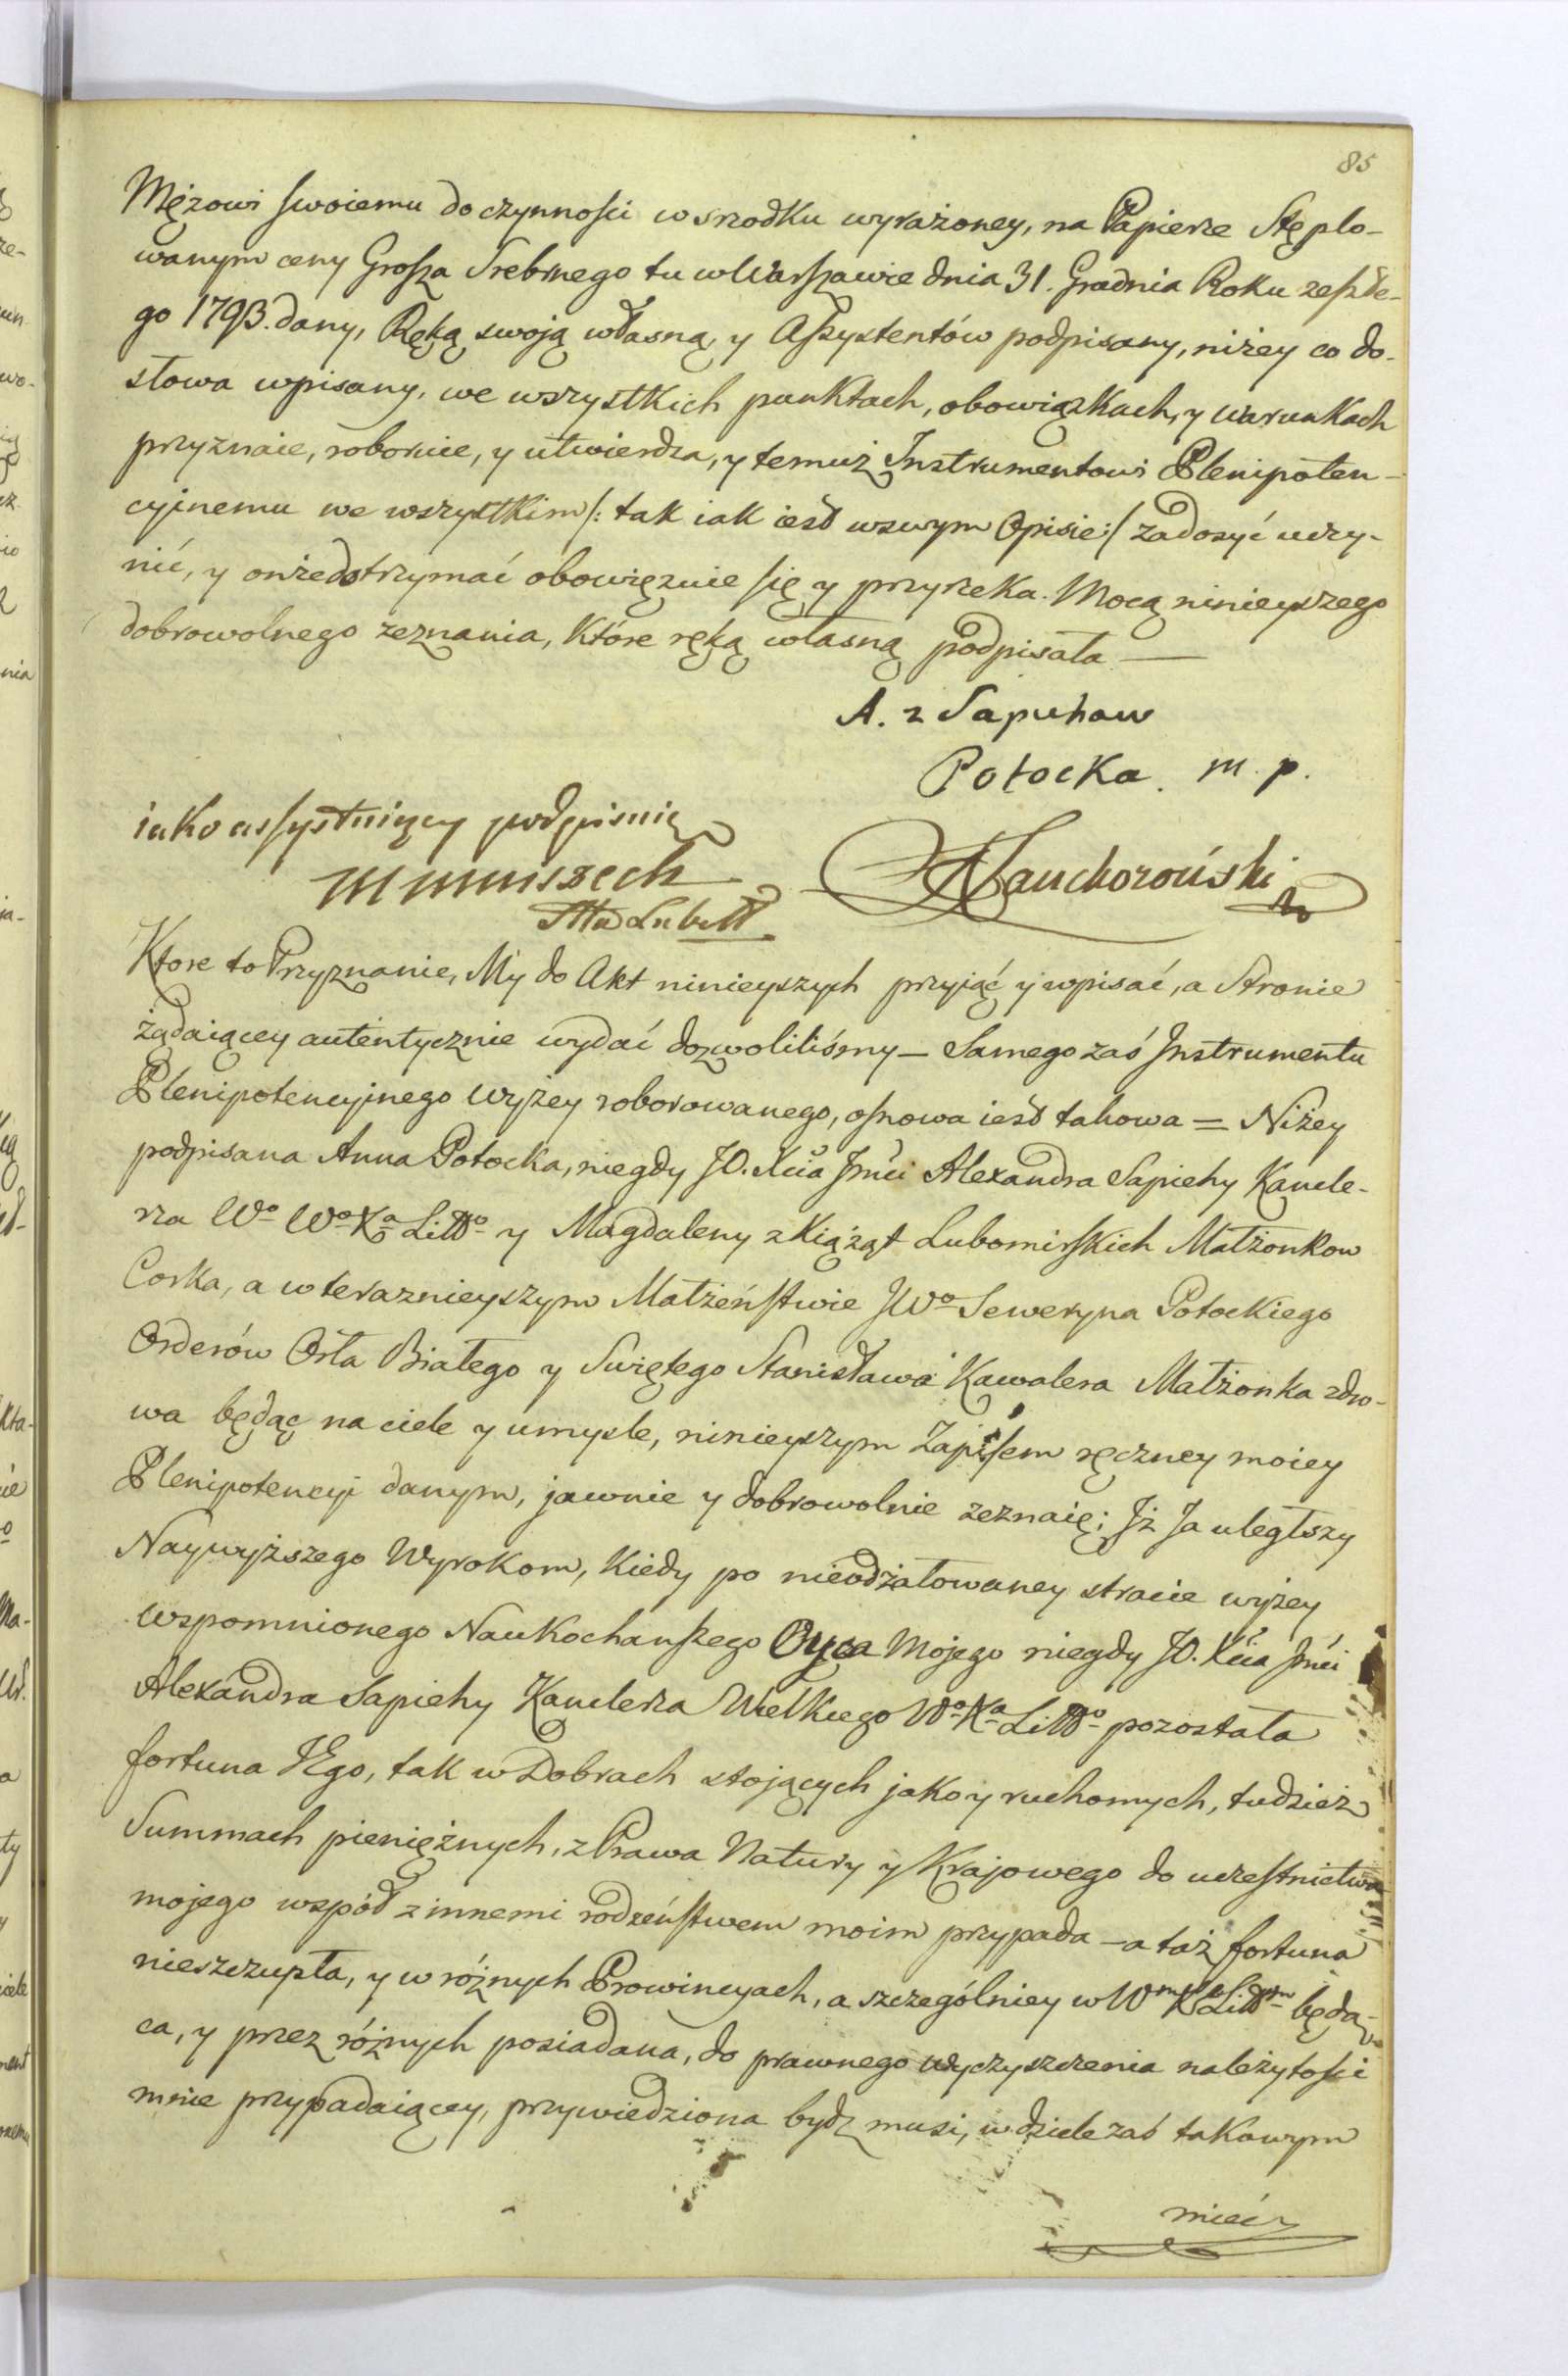 85
Mężowi swoiemu do czynności w srzodku wyrażoney, na Papierze Stęplo-
wanym ceny Grosza Srebrnego tu w Warszawie dnia 31. Grudnia Roku zeszłe-
go 1793. dany, Ręką swoią własną, y Assystentów podpisany, niżey co do-
słowa wpisany, we wszystkich punktach, obowiązkach, y warunkach
przyznaie, roboruie, y utwierdza, y temuż Instrumentowi Plenipoten-
cyinemu we wszystkim /: tak iak iest w swym Opisie :/ zadosyć uczy-
nić, y onże dotrzymać obowięzuie się y przyrzeka. Mocą ninieyszego
dobrowolnego zeznania, Które ręką własną podpisała —
A. z Sapiehow
Potocka. m. p.
iako assystuiący podpisuię
M Mniszech
Ktore to Przyznanie, My do Akt ninieyszych przyjąć y wpisać, a Stronie
żądaiącey autentycznie wydać dozwoliliśmy — Samego zaś Instrumentu
Plenipotencyjnego wyżey roborowanego, osnowa iest takowa = Niżey
podpisana Anna Potocka, niegdy JO. Xcia Jmci Alexandra Sapiehy Kancle-
rza Wo Wo Xa Litto y Magdaleny z Xiążąt Lubomirskich Małżonkow
Corka, a w terazniejszym Małżeństwie JWo Seweryna Potockiego
Orderów Orła Białego y Swiętego Stanisława Kawalera Małżonka zdro-
wa będąc na ciele y umysle, ninieyszym Zapisem ręczney moiey
Plenipotencyi danym, jawnie y dobrowolnie zeznaię; Iż Ja uległszy
Naywyższego Wyrokom, kiedy po nieodżałowaney stracie wyżey
wspomnionego Naukochanszego Oyca Mojego niegdy JO. Xcia Jmci
Alexandra Sapiehy Kanclerza Wielkiego Wo Xa Litto pozostała
fortuna JEgo, tak w Dobrach stojących jako y ruchomych, tudzież
Summach pieniężnych, z Prawa Natury y Krajowego do uczestnictwa
mojego wspód z innemi rodzeństwem moim przypada — a taż fortuna
nieszczupła, y w różnych Prowincyach, a szczególniey w Wm X Littm będą-
ca, y przez różnych posiadana, do prawnego wyczyszczenia należytości
mnie przypadaiącey, przywiedziona bydz musi, w dziele zaś takowym
mieć